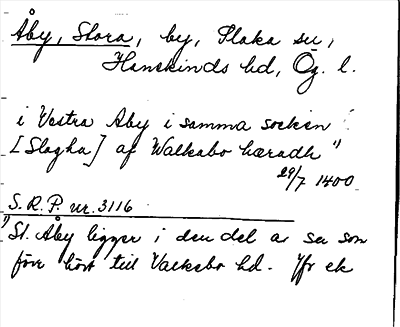 Åby, Stora, by, Slaka sn,
Hanekinds hd, Ög. l.
i Vestra Aby i samma socken
[Slagha] af Walkabo hæradh 1)
29/7 1400
S.R.P. nr. 3116
1) St. Åby ligger i den del av sn som
förr hört till Valkebo hd. Jfr ek